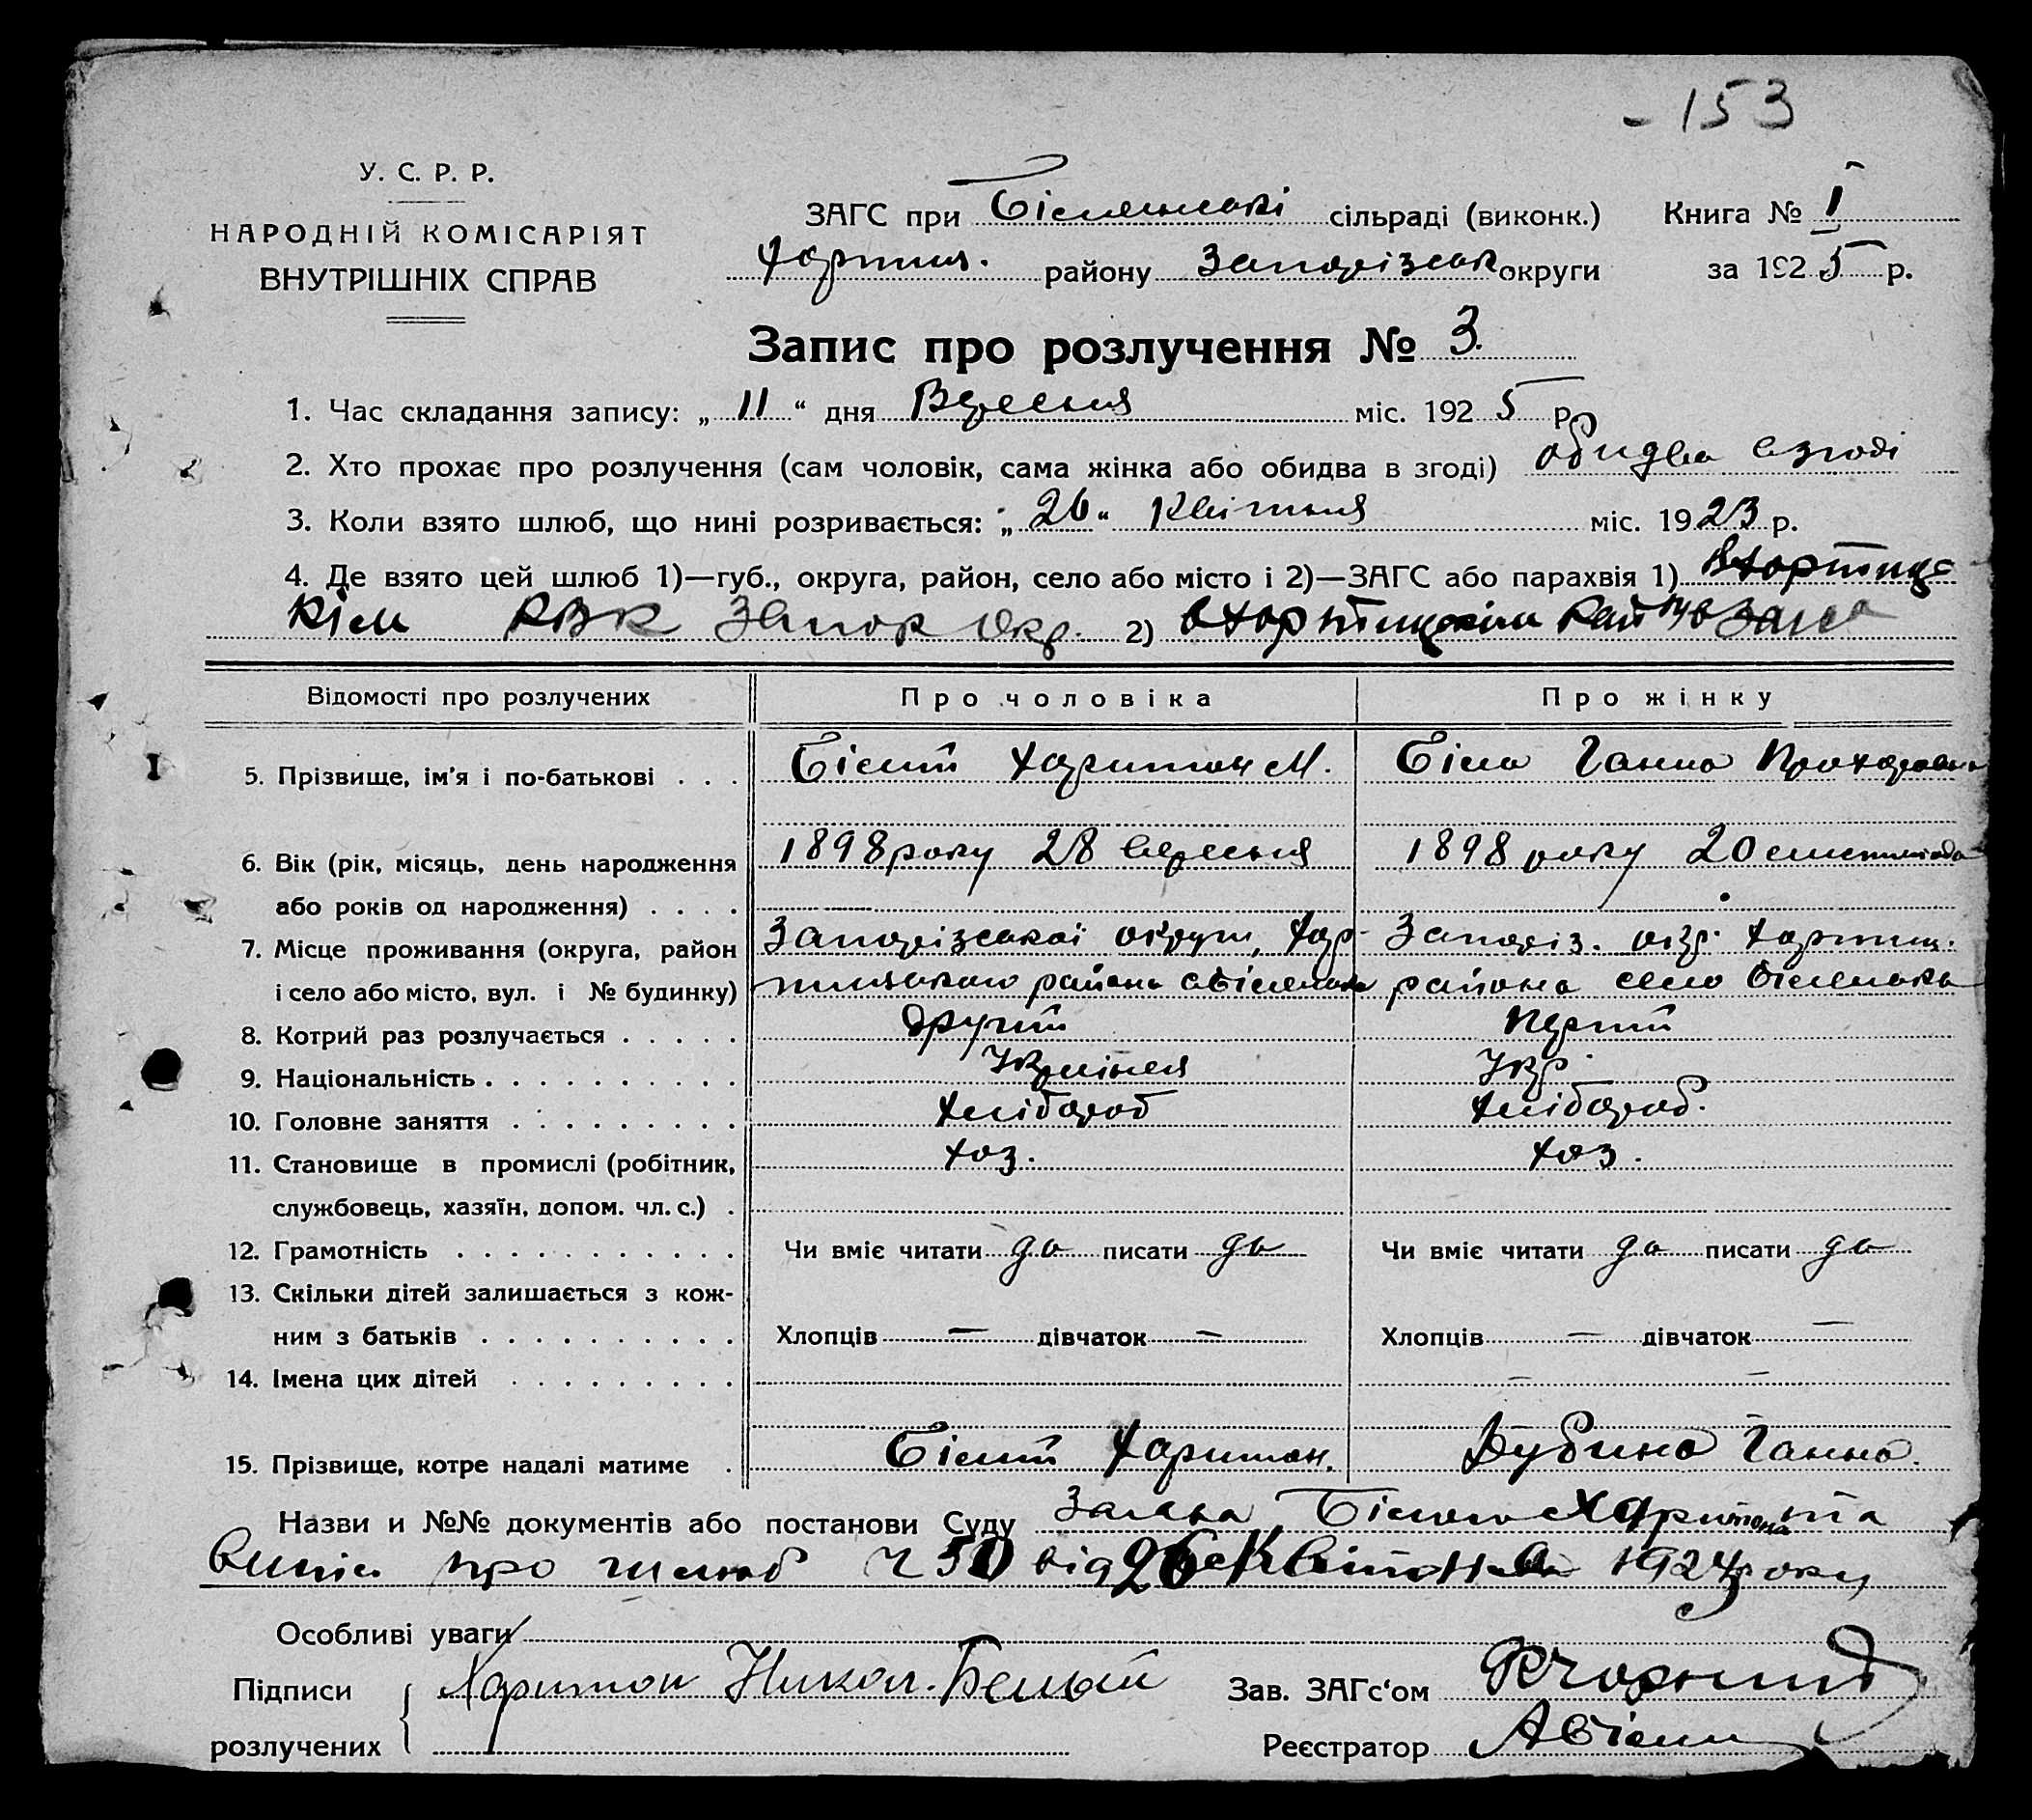 - 153
У. С. Р. Р.
НАРОДНІЙ КОМІСАРІЯТ
ВНУТРІШНІХ СПРАВ
ЗАГС при Біленьскі сільраді (виконк.) Книга № I
Хортиц. району Запорізськ округи за 1925 р.
Запис про розлучення № 3.
1. Час складання запису: „ 11 “ дня Вересня міс. 1925 р.
2. Хто прохає про розлучення (сам чоловік, сама жінка або обидва в згоді) обидва взгоді
3. Коли взято шлюб, що нині розривається: „ 26 “ Квітня міс. 1923 р.
4. Де взято цей шлюб 1)—губ., округа, район, село або місто і 2)—ЗАГС або парахвія 1) в Хортице
кім РВК Запор Окр. 2) в Хортицькім
Відомості про розлучених Про чоловіка Про жінку
5. Прізвище, ім'я і по-батькові . . . Білий Харитон М. Біла Ганна Прохоровна
6. Вік (рік, місяць, день народження 1898 року 28 вересня 1898 року 20 листопада
або років од народження) . . . .
7. Місце проживання (округа, район Запорізської округи, Хор- Запоріз. окр. Хортиц.
і село або місто, вул. і № будинку) тицького района с Біленьке района село Біленька
8. Котрий раз розлучається . . . . . другий перший
9. Національність . . . . . . . . . . Українєц Укр.
10. Головне заняття . . . . . . . . . Хлібороб Хлібороб.
11. Становище в промислі (робітник, хоз. хоз.
службовець, хазяїн, допом. чл. с.) .
12. Грамотність . . . . . . . . . . . . Чи вміє читати да писати да Чи вміє читати да писати да
13. Скільки дітей залишається з кож-
ним з батьків . . . . . . . . . . Хлопців — дівчаток — Хлопців — дівчаток —
14. Імена цих дітей . . . . . . . . . — —
15. Прізвище, котре надалі матиме . Білий Харитон. Дубина Ганна.
Назви и №№ документів або постанови Суду Заява Білого Харитона та
випис про шлюб Ч 50 від 26 Квітня 1923 року
Особливі уваги
Підписи Харитон Никол. Белый Зав. ЗАГс'ом
розлучених Реєстратор А Білий